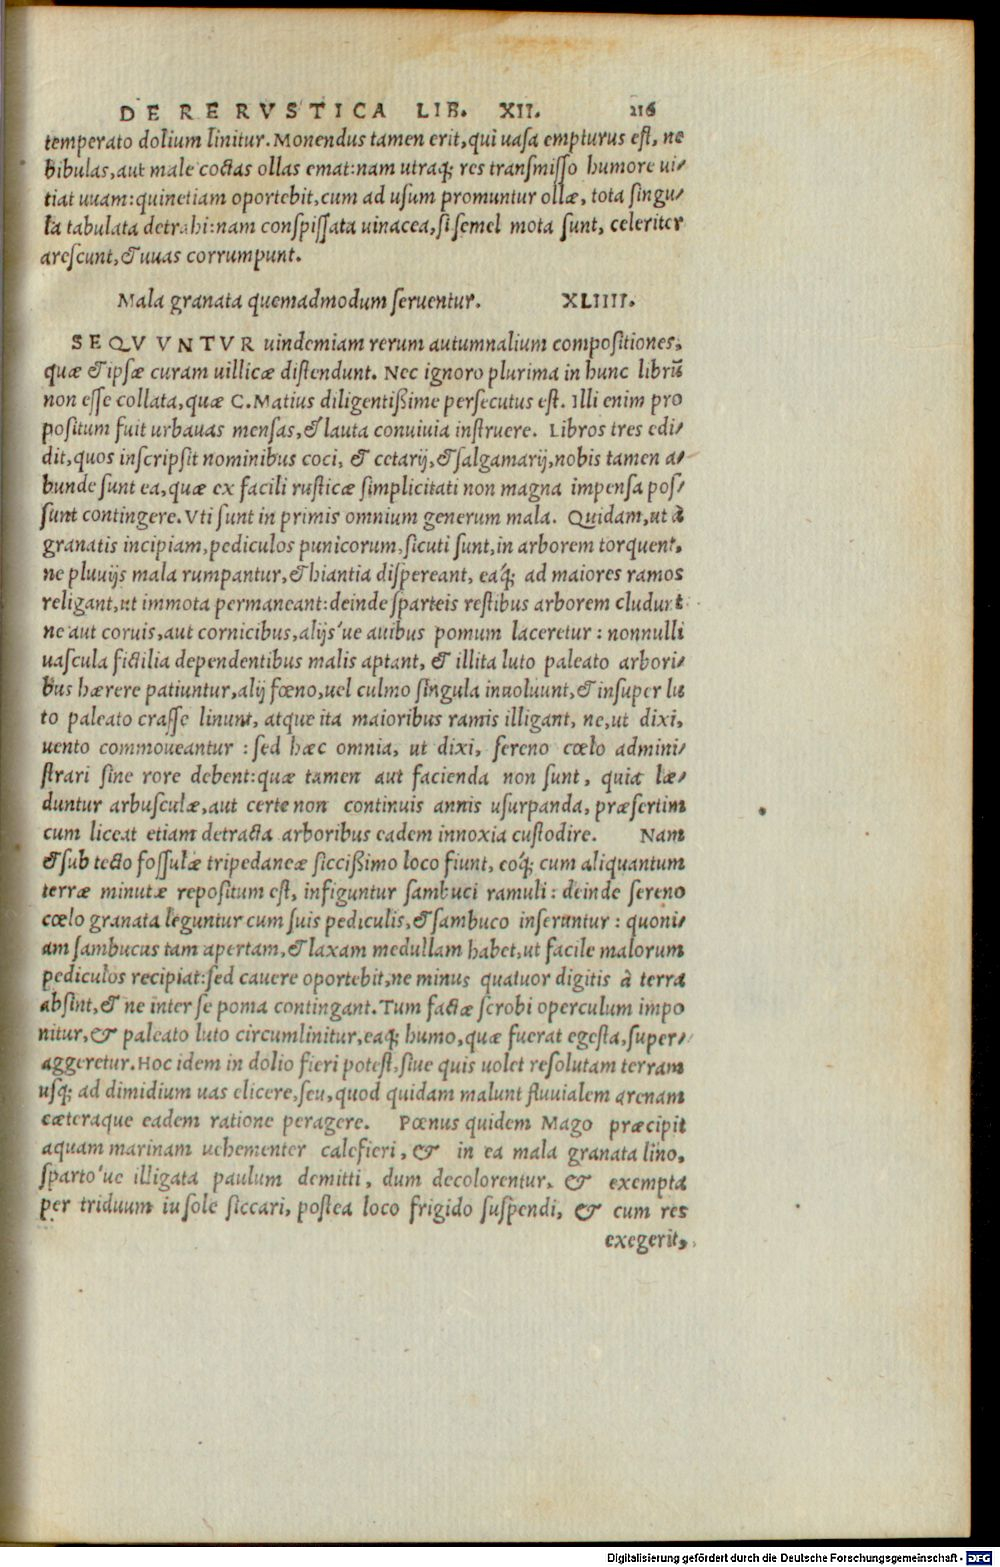 DE RE RVSTICA LIB. XII. 216
temperato dolium linitur. Monendus tamen erit, qui uasa empturus est, ne
bibulas, aut male coctas ollas emat: nam utraq; res transmisso humore ui/
tiat uuam: quinetiam oportebit, cum ad usum promuntur ollæ, tota singu/
la tabulata detrahi: nam conspissata uinacea, si semel mota sunt, celeriter
arescunt, & uuas corrumpunt.
Mala granata quemadmodum seruentur. XLIIII.
SEQVVNTVR uindemiam rerum autumnalium compositiones,
quæ & ipsæ curam uillicæ distendunt. Nec ignoro plurima in hunc librū
non esse collata, quæ C. Matius diligentißime persecutus est. Illi enim pro
positum fuit urbauas mensas, & lauta conuiuia instruere. Libros tres edi/
dit, quos inscripsit nominibus coci, & cetarij, & salgamarij, nobis tamen a/
bunde sunt ea, quæ ex facili rusticæ simplicitati non magna impensa pos/
sunt contingere. Vti sunt in primis omnium generum mala. Quidam, ut à
granatis incipiam, pediculos punicorum, sicuti sunt, in arborem torquent,
ne pluuijs mala rumpantur, & hiantia dispereant, eaq́; ad maiores ramos
religant, ut immota permaneant: deinde sparteis restibus arborem cludunt
ne aut coruis, aut cornicibus, alijs'ue auibus pomum laceretur: nonnulli
uascula fictilia dependentibus malis aptant, & illita luto paleato arbori/
bus hærere patiuntur, alij fœno, uel culmo singula inuoluunt, & insuper lu
to paleato crasse linunt, atque ita maioribus ramis illigant, ne, ut dixi,
uento commoueantur: sed hæc omnia, ut dixi, sereno cœlo admini/
strari sine rore debent: quæ tamen aut facienda non sunt, quia læ/
duntur arbusculæ, aut certe non continuis annis usurpanda, præsertim
cum liceat etiam detracta arboribus eadem innoxia custodire. Nam
& sub tecto fossulæ tripedaneæ siccißimo loco fiunt, eoq́; cum aliquantum
terræ minutæ repositum est, infiguntur sambuci ramuli: deinde sereno
cœlo granata leguntur cum suis pediculis, & sambuco inseruntur: quoni/
am sambucus tam apertam, & laxam medullam habet, ut facile malorum
pediculos recipiat: sed cauere oportebit, ne minus quatuor digitis à terra
absint, & ne inter se poma contingant. Tum factæ scrobi operculum impo
nitur, & paleato luto circumlinitur, eaq; humo, quæ fuerat egesta, super/
aggeretur. Hoc idem in dolio fieri potest, siue quis uolet resolutam terram
usq; ad dimidium uas elicere, seu, quod quidam malunt fluuialem arenam
cæteraque eadem ratione peragere. Pœnus quidem Mago præcipit
aquam marinam uehementer calefieri, & in ea mala granata lino,
sparto'ue illigata paulum demitti, dum decolorentur, & exempta
per triduum iu sole siccari, postea loco frigido suspendi, & cum res
exegerit,
Digitalisierung gefördert durch die Deutsche Forschungsgemeinschaft - DFG